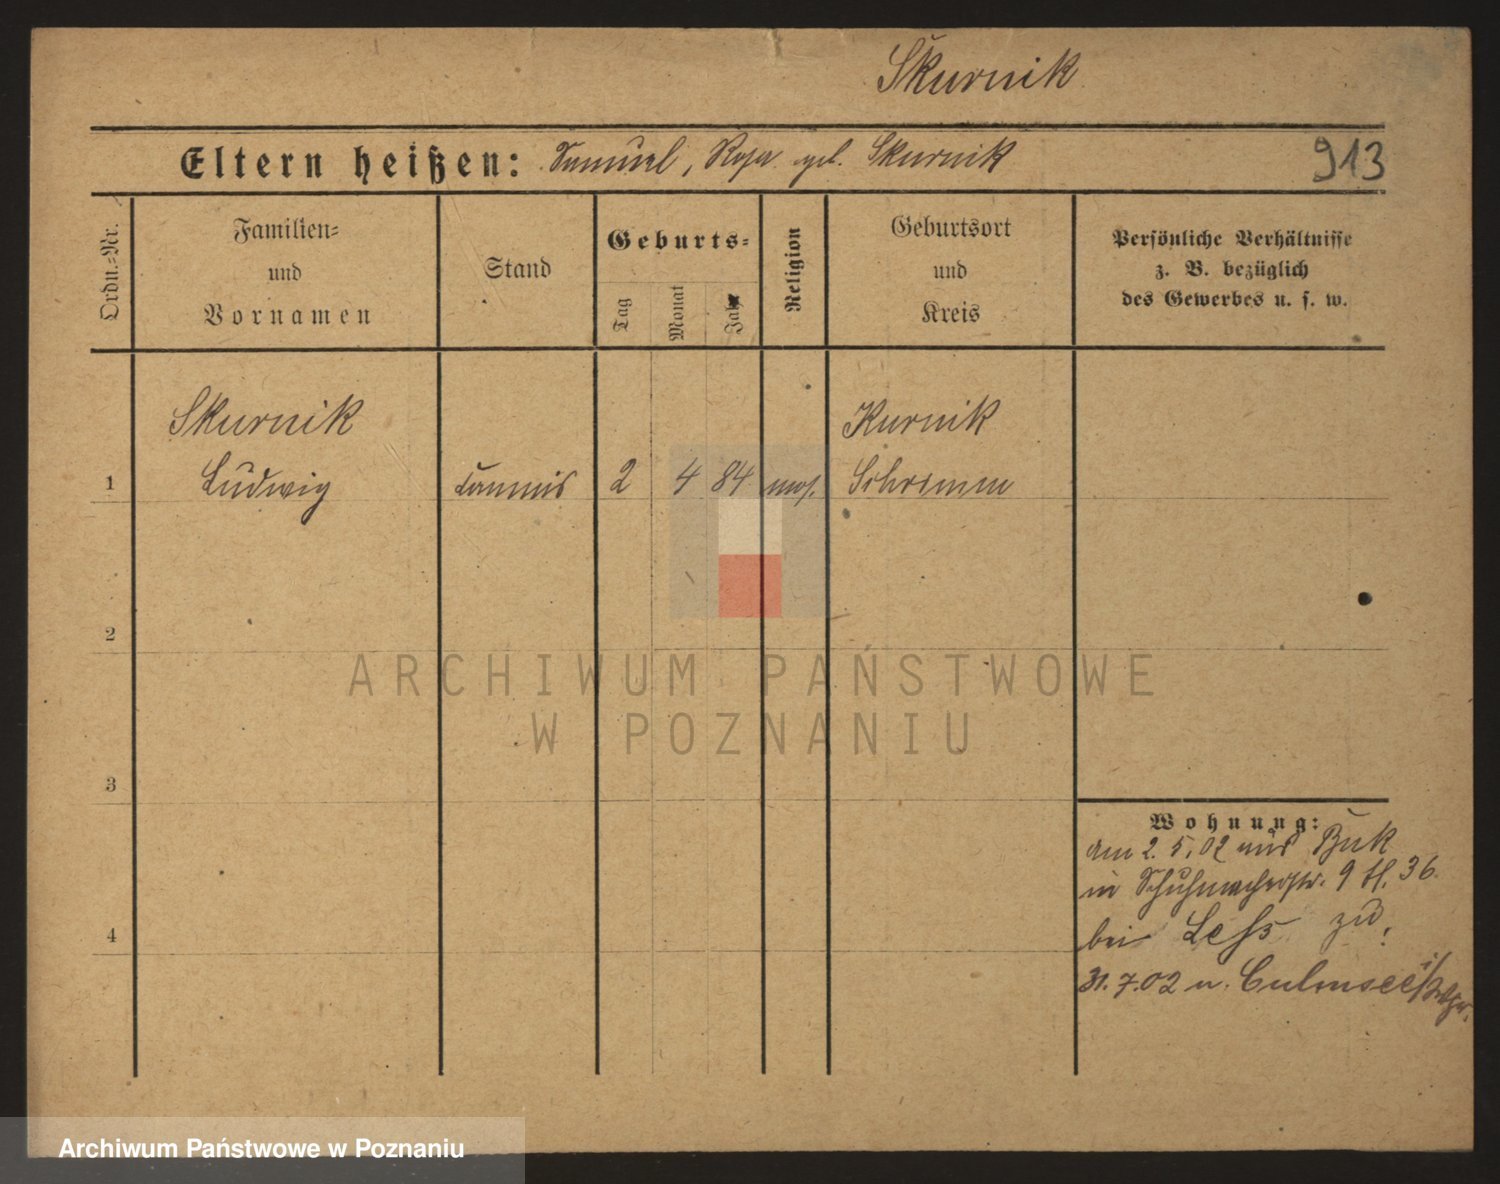 Skurnik
Eltern heißen: Samuel, Rosa geb. Skurnik
913
Ordn.-Nr.
Familien-
und
Vornamen
Stand
Geburts-
Tag
Monat
Jahr
Religion
Geburtsort
und
Kreis
Persönliche Verhältnisse
z. B. bezüglich
des Gewerbes u. s. w.
Skurnik
Kurnik
1
Ludwig
Commis
2
4
84
mos.
Schrimm
2
ARCHIWUM PAŃSTWOWE
W POZNANIU
3
Wohnung:
am 2. 5. 02 aus Buk
in Schuhmacherstr. 9 tl. 36
bei zu.
4
31. 7. 02 n. Culmsee i/
Archiwum Państwowe w Poznaniu